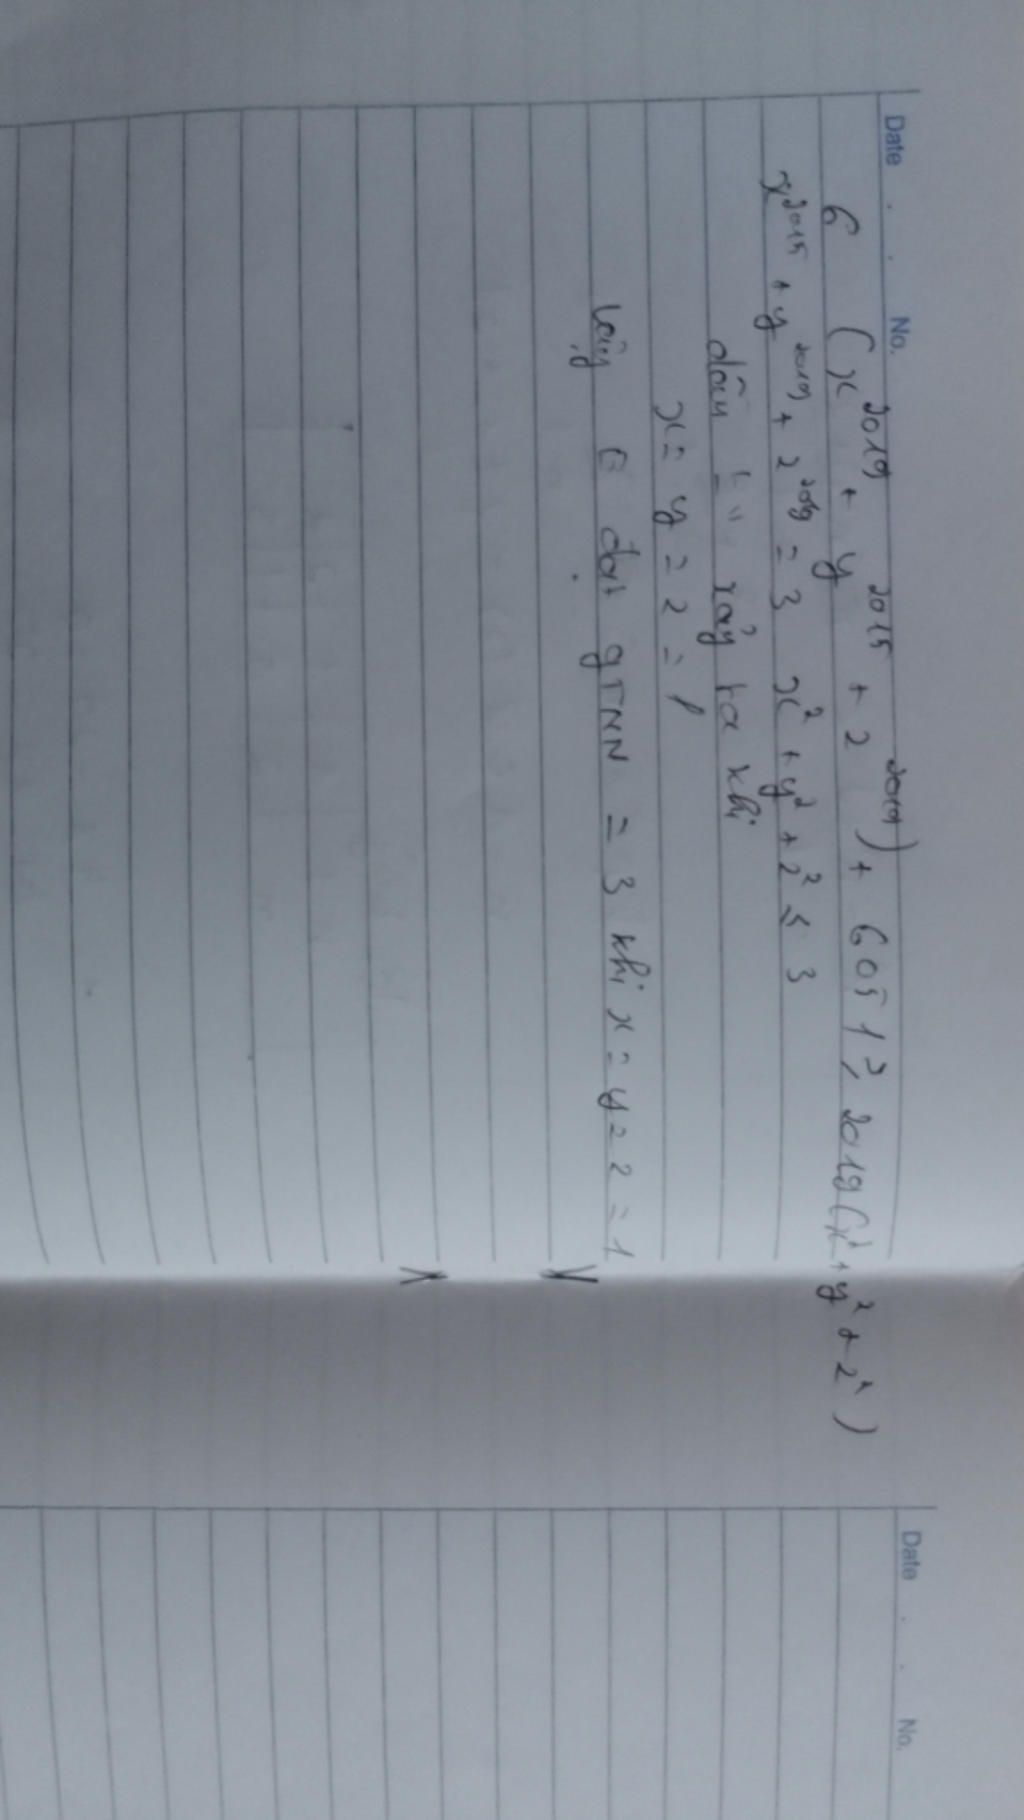 Date . . No.
6 (x^2019 + y^2015 + 2^2019) + 6051 ≥ 2019(x² + y² + 2²)
x^2015 + y^2019 + 2^2019 = 3 x² + y² + 2² ≤ 3
dấu "=" xảy ra khi
x = y = 2 = 1
Vậy E đạt gTNN = 3 khi x = y = 2 = 1
Date . . No.